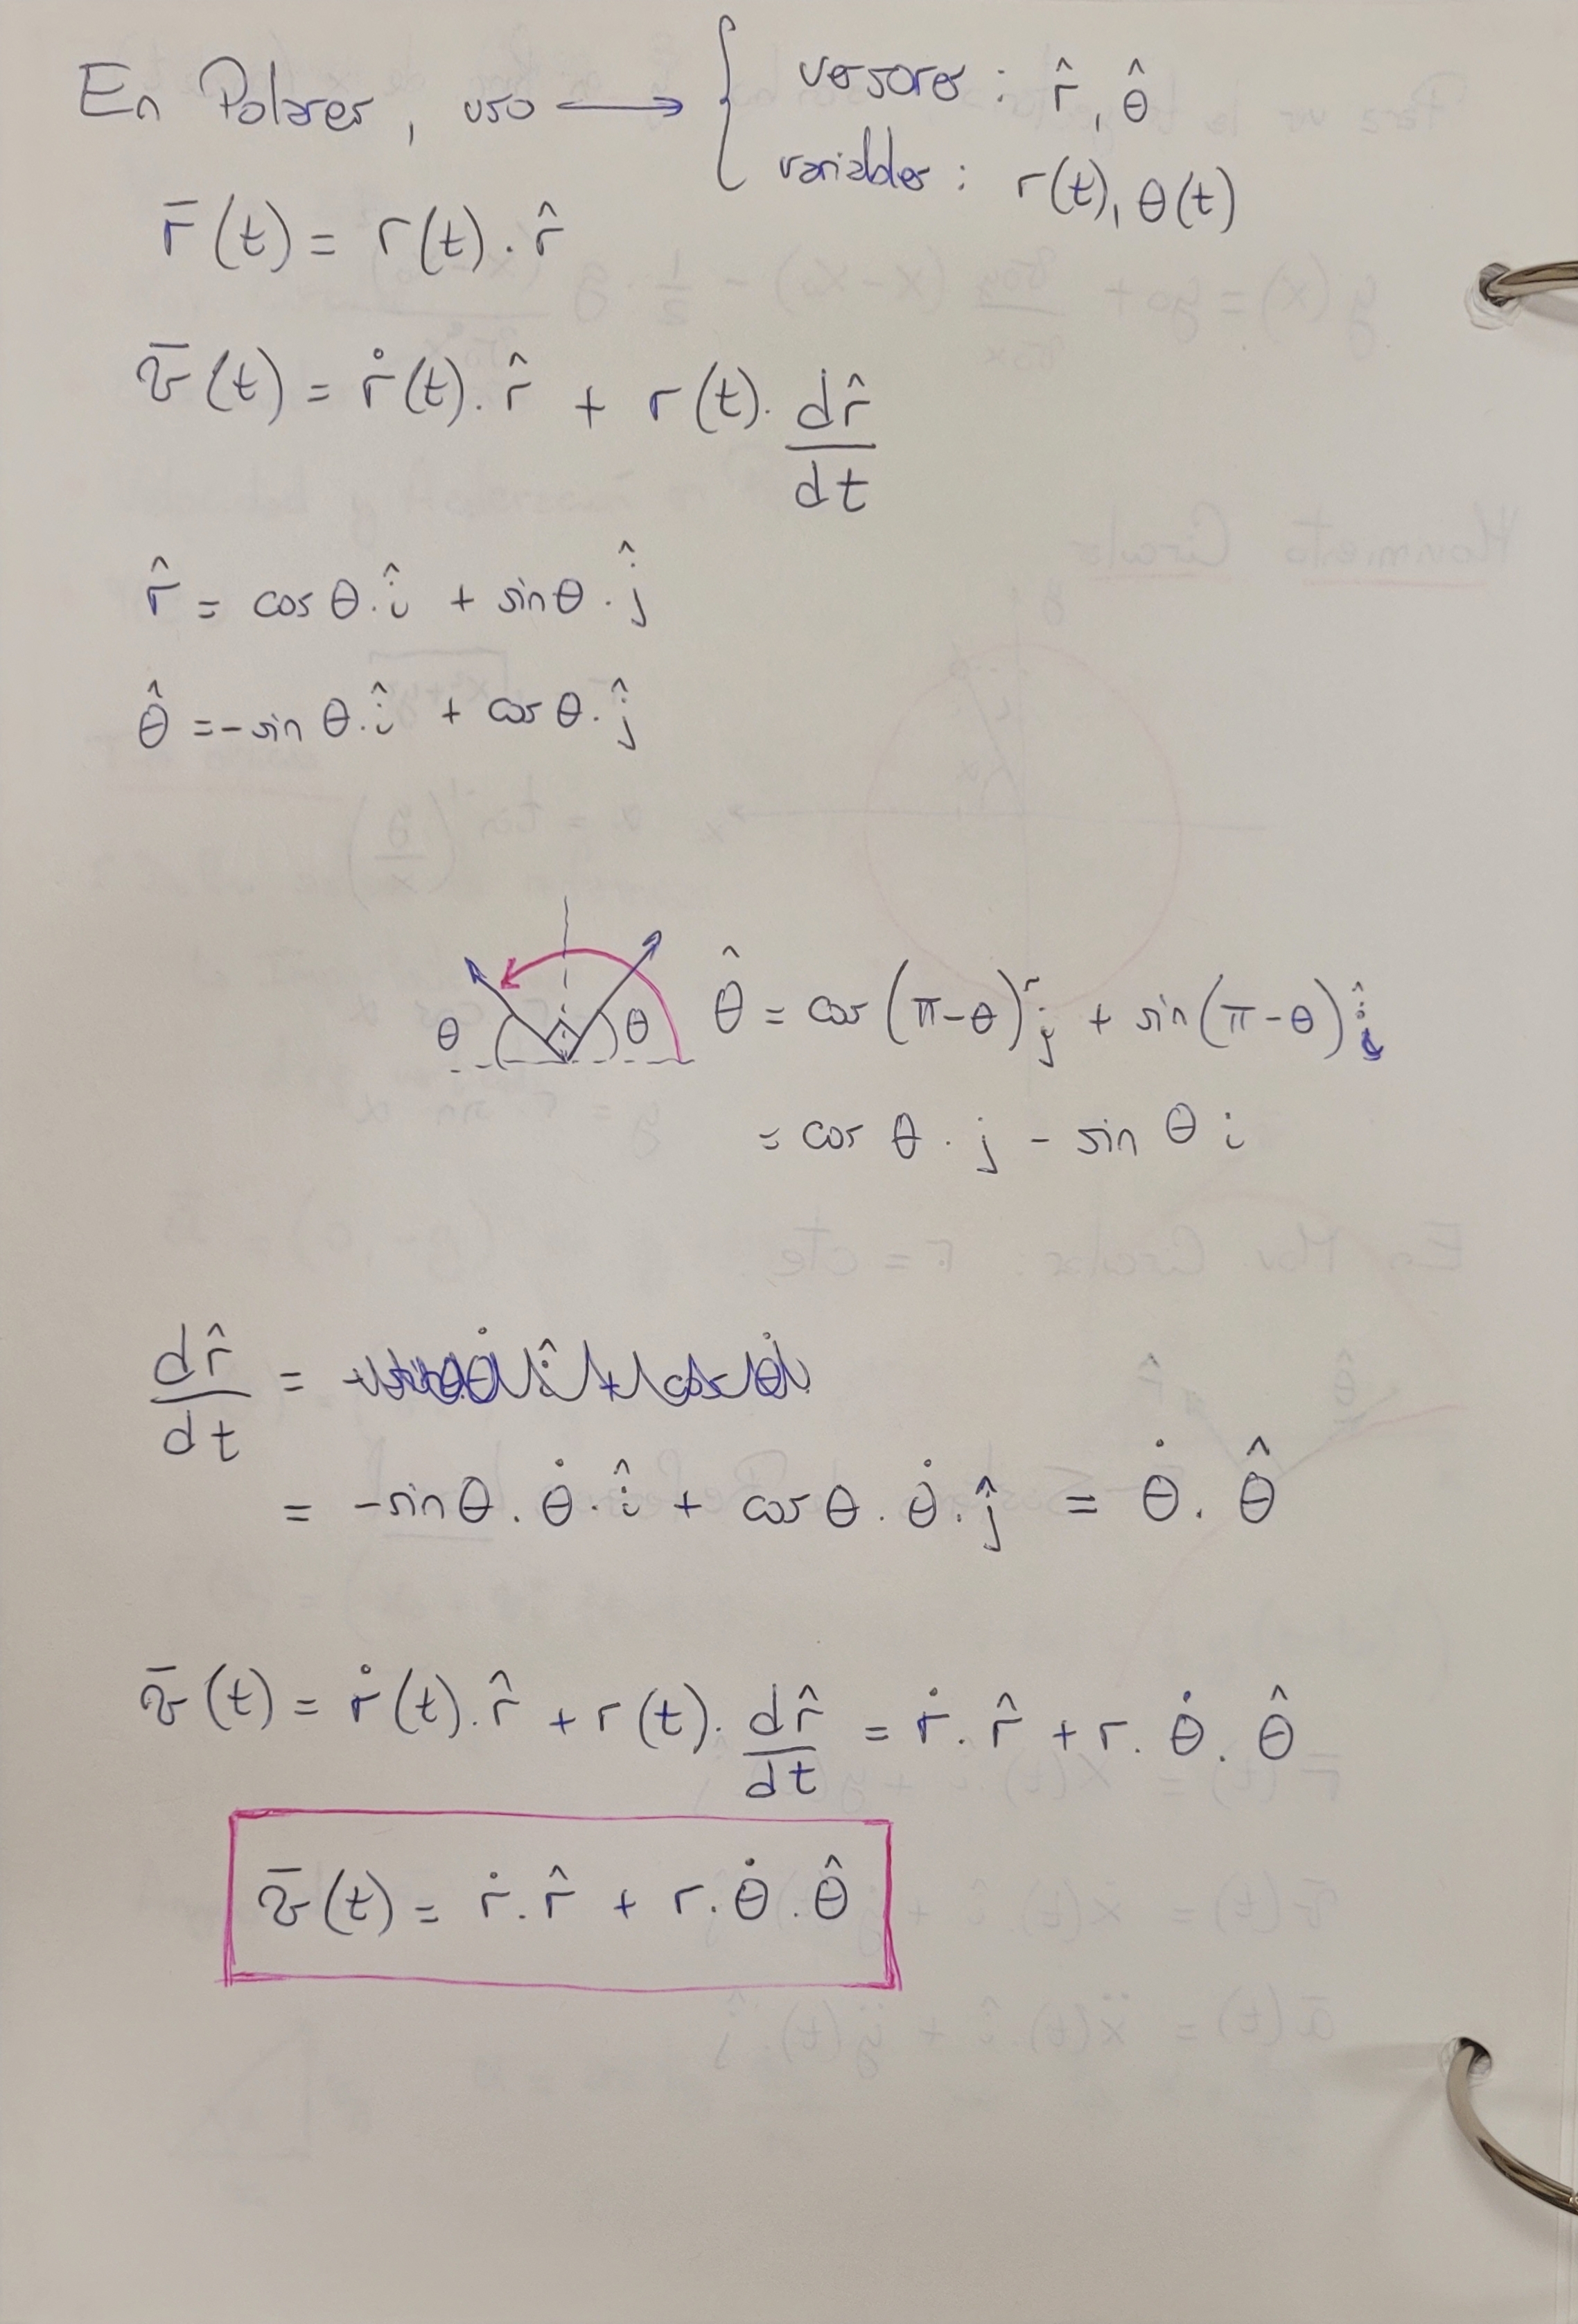 En Polares, uso → { versores: r̂, θ̂
variables: r(t), θ(t)
r̄(t) = r(t) . r̂
v̄(t) = ṙ(t) . r̂ + r(t) . dr̂/dt
r̂ = cos θ . î + sin θ . ĵ
θ̂ = - sin θ . î + cos θ . ĵ
θ θ θ̂ = cos (π-θ) ĵ + sin (π-θ) î
= cos θ . j - sin θ i
dr̂/dt =
= - sin θ . θ̇ . î + cos θ . θ̇ . ĵ = θ̇ . θ̂
v̄(t) = ṙ(t) . r̂ + r(t) . dr̂/dt = ṙ . r̂ + r . θ̇ . θ̂
v̄(t) = ṙ . r̂ + r . θ̇ . θ̂